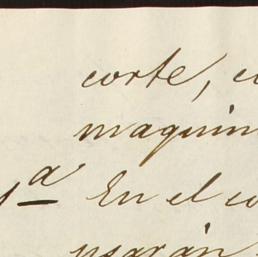 corte, co
maquin
1ª En el co
usarán